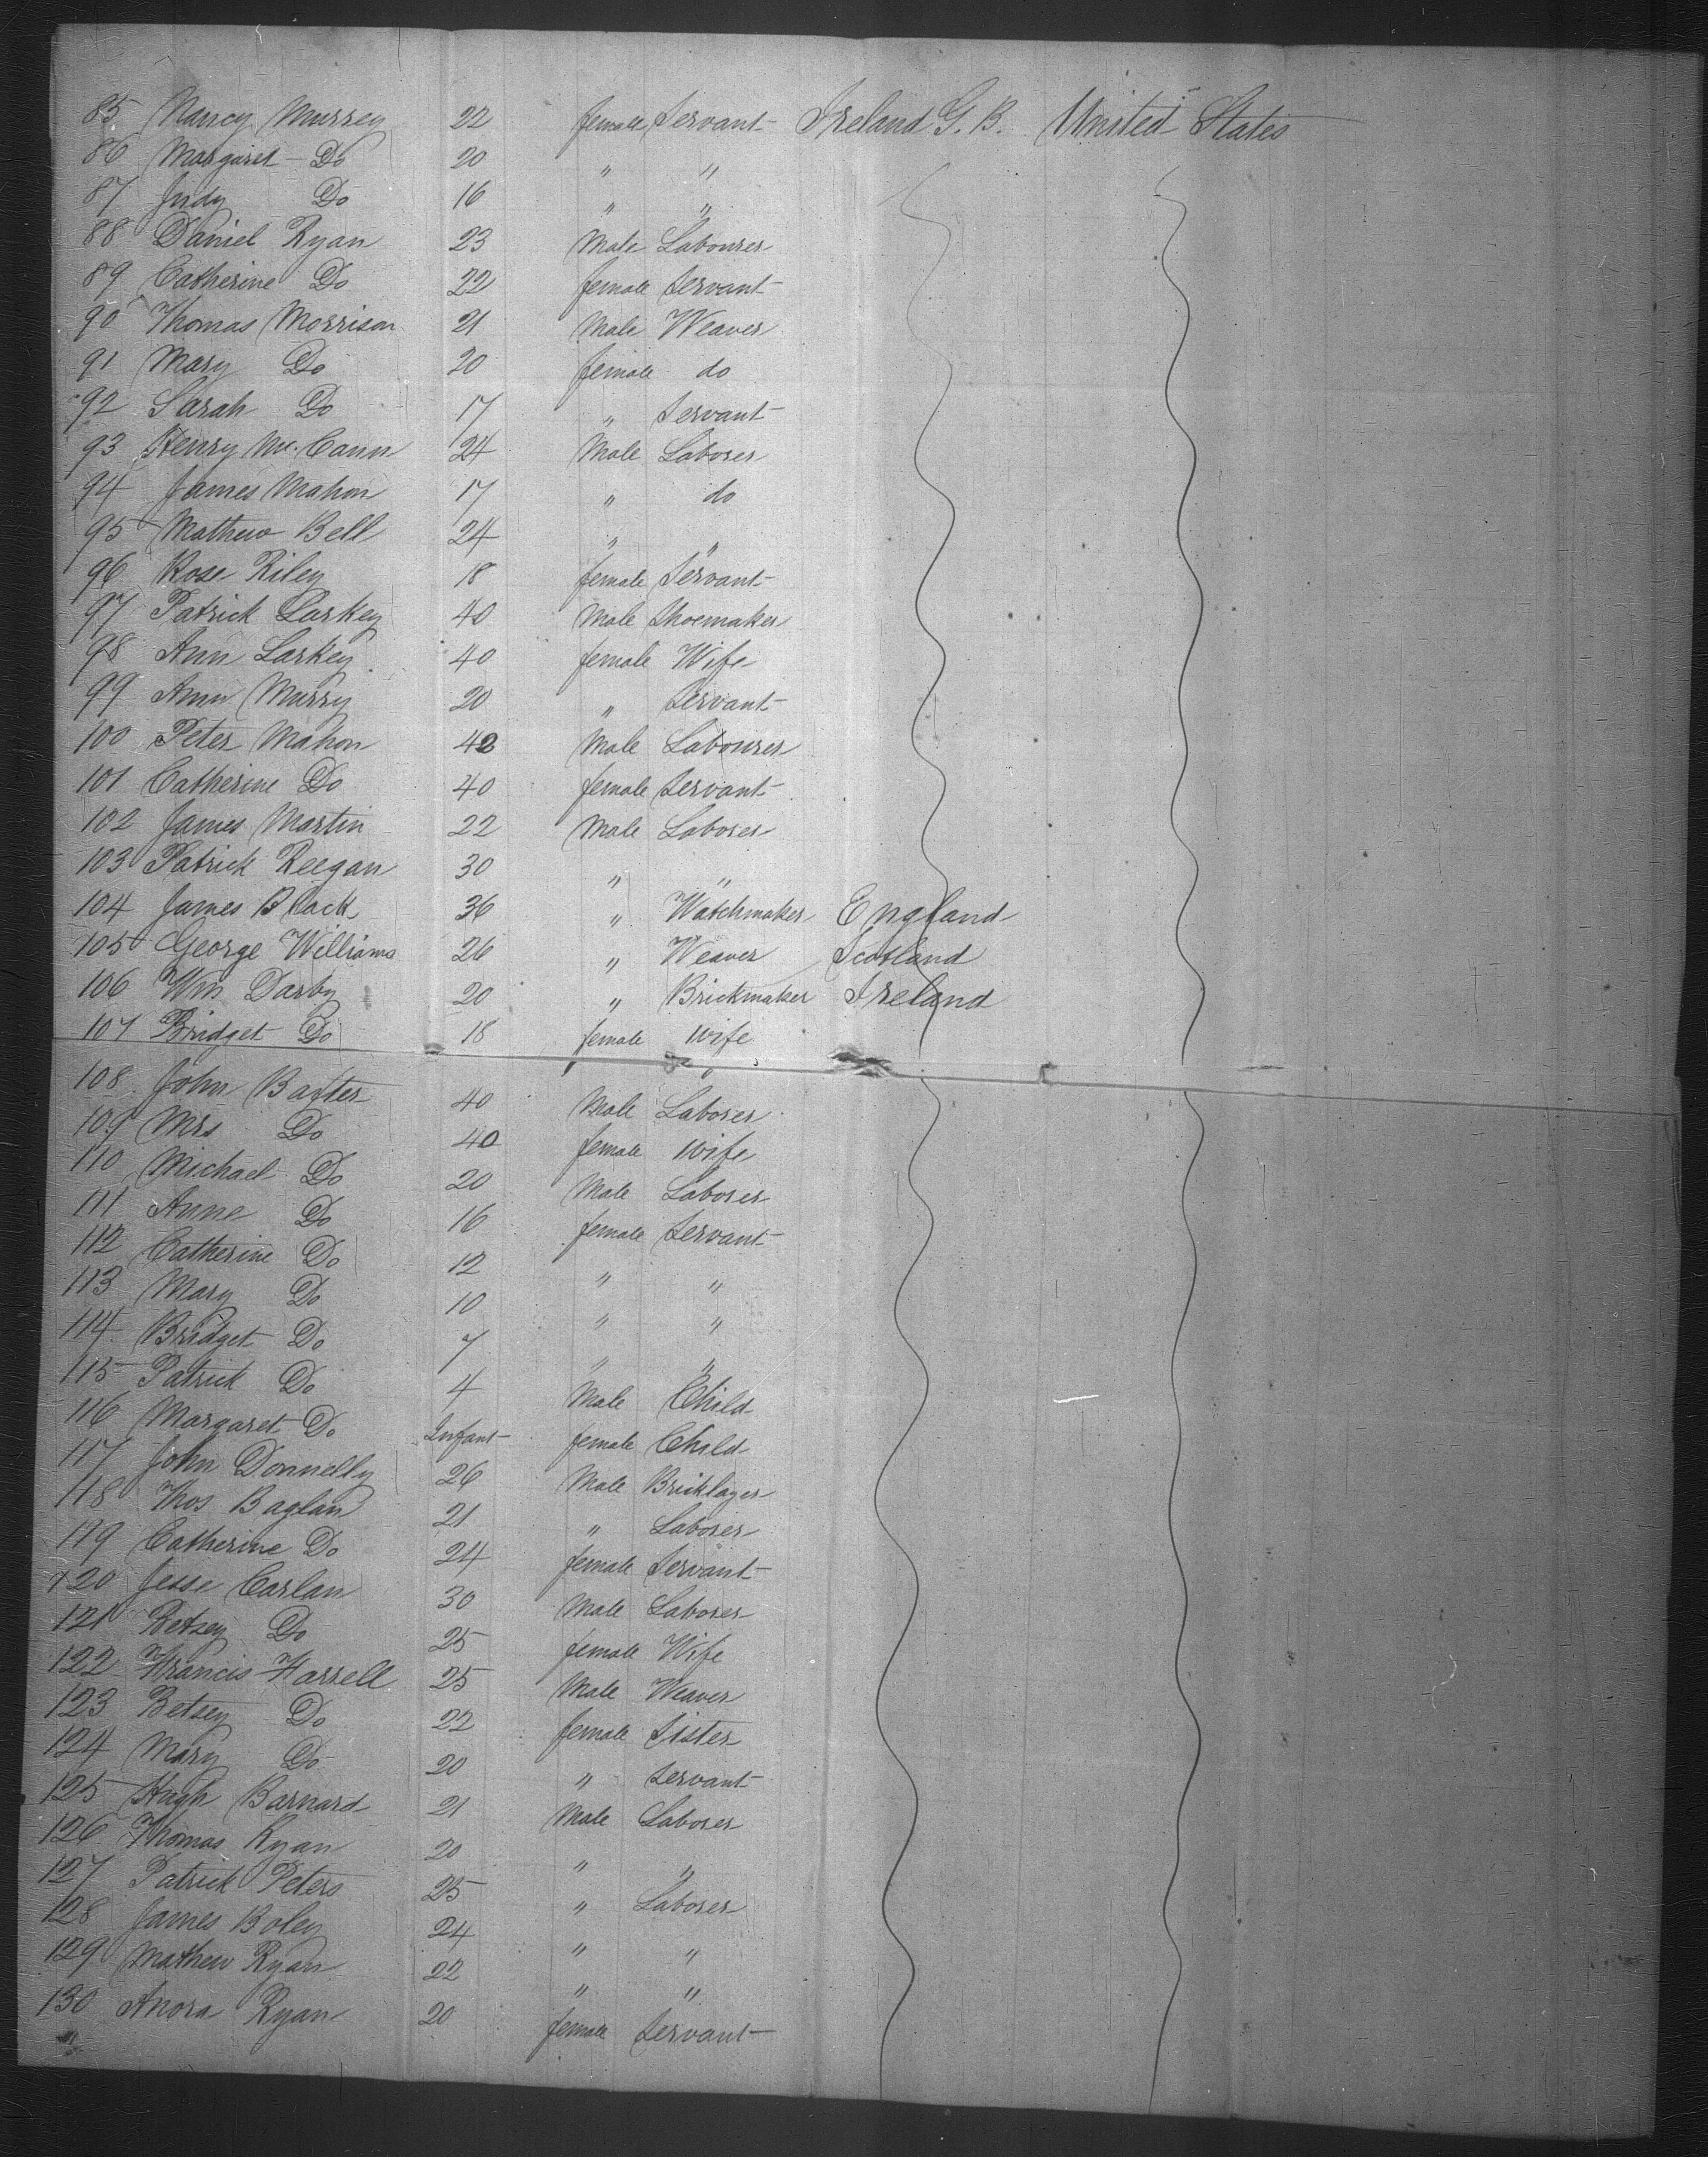 85 Nancy Murrey 22 female Servant Ireland G. B. United States
86 Margaret Do 20 " "
87 Judy Do 16 " "
88 Daniel Ryan 23 Male Labourer
89 Catherine Do 22 female Servant
90 Thomas Morrison 21 Male Weaver
91 Mary Do 20 female do
92 Sarah Do 17 " Servant
93 Henry Mc. Cann 24 Male Laborer
94 James Mahon 17 " do
95 Mathew Bell 24 " "
96 Rose Riley 18 female Servant
97 Patrick Larkey 40 Male Shoemaker
98 Ann Larkey 40 female Wife
99 Ann Murry 20 " Servant
100 Peter Mahon 42 Male Labourer
101 Catherine Do 40 female Servant
102 James Martin 22 Male Laborer
103 Patrick Reegan 30 " "
104 James Black 36 " Watchmaker England
105 George Williams 26 " Weaver Scotland
106 Wm Darby 20 " Brickmaker Ireland
107 Bridget Do 18 female wife
108 John Baxter 40 Male Laborer
109 Mrs Do 40 female wife
110 Michael Do 20 Male Laborer
111 Anne Do 16 female Servant
112 Catherine Do 12 " "
113 Mary Do 10 " "
114 Bridget Do 7 " "
115 Patrick Do 4 Male Child
116 Margaret Do Infant female Child
117 John Donnelly 26 Male Bricklayer
118 Thos Baglan 21 " Laborer
119 Catherine Do 24 female Servant
120 Jesse Carlan 30 Male Laborer
121 Betsey Do 25 female Wife
122 Francis Farrell 25 Male Weaver
123 Betsey Do 22 female Sister
124 Mary Do 20 " Servant
125 Hugh Barnard 21 Male Laborer
126 Thomas Ryan 20 " "
127 Patrick Peters 25 " Laborer
128 James Boley 24 " "
129 Mathew Ryan 22 " "
130 Anora Ryan 20 female Servant